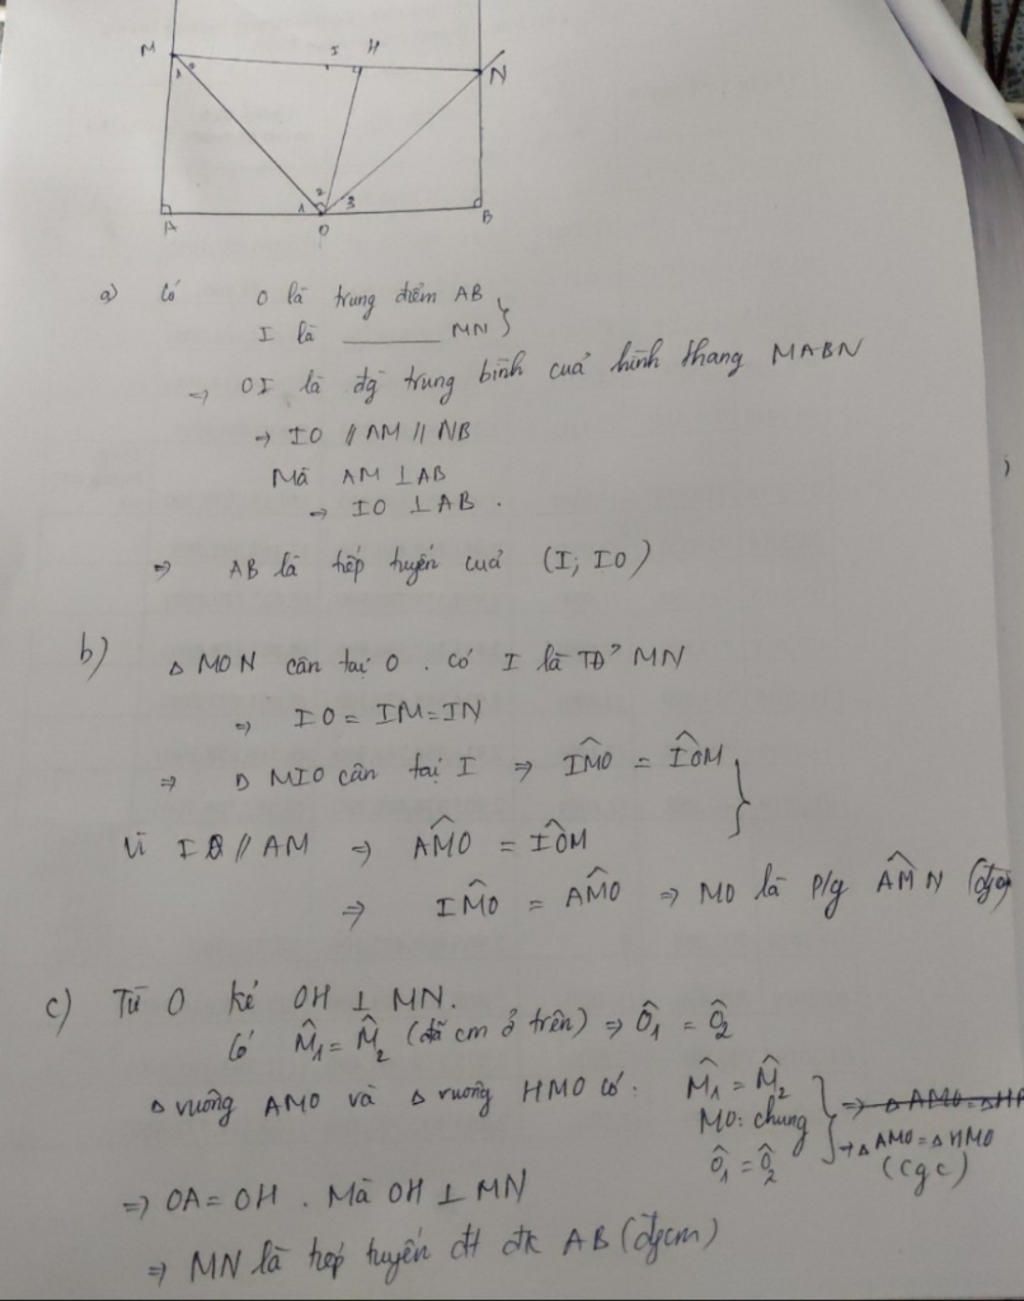 M I H N
1 2
1 2 3
A O B
a) Có O là trung điểm AB
I là ______ MN
⇒ OI là đg trung bình của hình thang MABN
→ IO // AM // NB
Mà AM ⊥ AB
→ IO ⊥ AB .
⇒ AB là tiếp tuyến của (I; IO)
b) Δ MON cân tại O . Có I là TĐ' MN
⇒ IO = IM = IN
⇒ Δ MIO cân tại I ⇒ IM̂O = IÔM
Vì IO // AM ⇒ AM̂O = IÔM
⇒ IM̂O = AM̂O ⇒ MO là p/g AM̂N
c) Từ O kẻ OH ⊥ MN.
Có M̂₁ = M̂₂ (đã cm ở trên) ⇒ Ô₁ = Ô₂
Δ vuông AMO và Δ vuông HMO có: M̂₁ = M̂₂
MO: chung
Ô₁ = Ô₂
→ Δ AMO = Δ HMO
(cgc)
⇒ OA = OH . Mà OH ⊥ MN
⇒ MN là tiếp tuyến đt đk AB (đpcm)